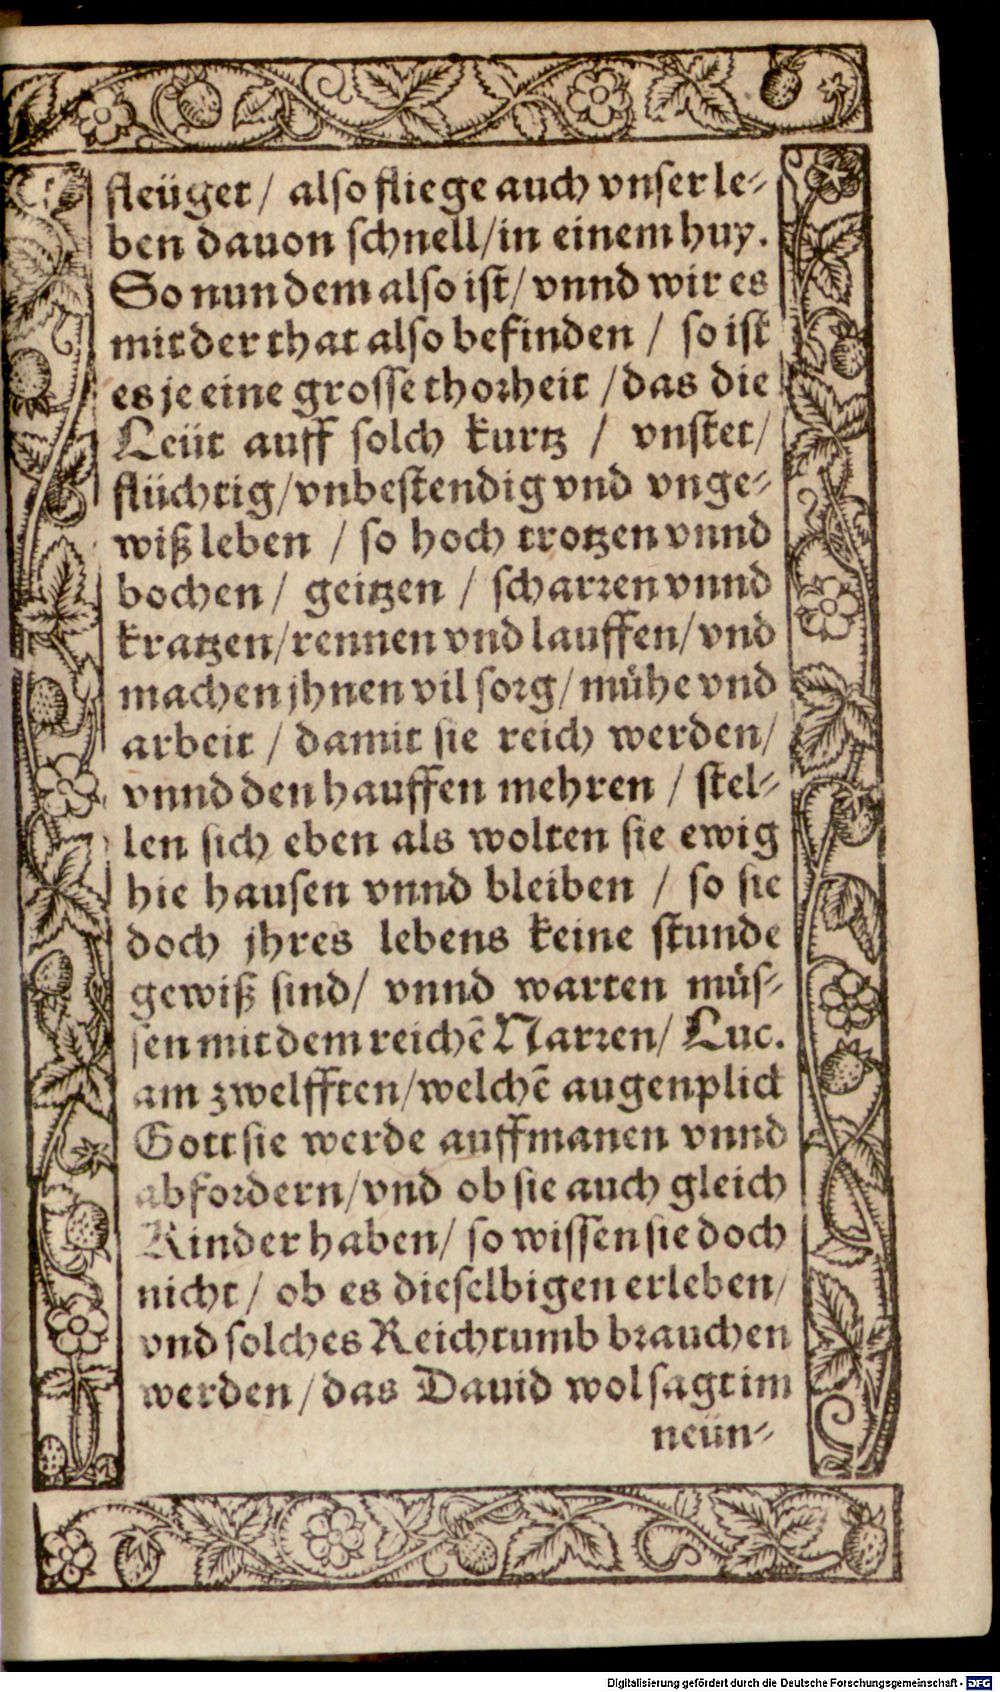 fleüget / also fliege auch vnser le-
ben dauon schnell / in einem huy.
So nun dem also ist / vnnd wir es
mit der that also befinden / so ist
es je eine grosse thorheit / das die
Leüt auff solch kurtz / vnstet /
flüchtig / vnbestendig vnd vnge-
wiß leben / so hoch trotzen vnnd
bochen / geitzen / scharren vnnd
kratzen / rennen vnd lauffen / vnd
machen jhnen vil sorg / mühe vnd
arbeit / damit sie reich werden /
vnnd den hauffen mehren / stel-
len sich eben als wolten sie ewig
hie hausen vnnd bleiben / so sie
doch jhres lebens keine stunde
gewiß sind / vnnd warten müs-
sen mit dem reichē Narren / Luc.
am zwelfften / welchē augenplick
Gott sie werde auffmanen vnnd
abfordern / vnd ob sie auch gleich
Kinder haben / so wissen sie doch
nicht / ob es dieselbigen erleben /
vnd solches Reichtumb brauchen
werden / das Dauid wol sagt im
neün-
Digitalisierung gefördert durch die Deutsche Forschungsgemeinschaft - DFG